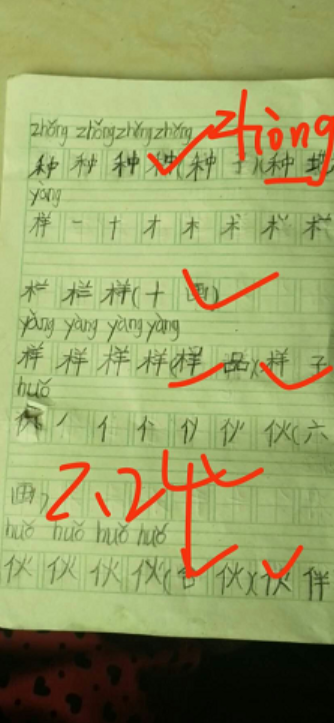 zhòng
zhǒng zhǒng zhǒng zhǒng
种 种 种 种(种 子)(种 地
yàng
样 一 十 才 木 术 栏 栏
栏 栏 样(十 画)
yàng yàng yàng yàng
样 样 样 样(样 品)(样 子
huǒ
亻 亻 仆 伙 伙 伙(六
画)
2、24
huǒ huǒ huǒ huǒ
伙 伙 伙 伙( 伙)(伙 伴